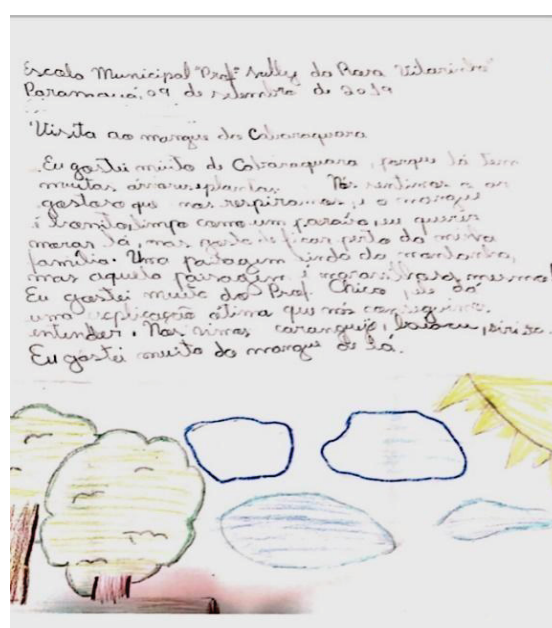 Escola Municipal "Profª Sully da Rosa Vilarinho"
Paranaguá, 09 de setembro de 2019
Visita ao mangue do Cabaraquara
Eu gostei muito de Cabaraquara, porque lá tem
muitas árvores, plantas. Nós sentimos o ar
gostoso que nós respiramos, e o mangue
é bonito, limpo como um paraíso, eu queria
morar lá, mas gosto de ficar perto da minha
família. Uma paisagem linda da montanha,
mas aquela paisagem é maravilhosa mesmo!
Eu gostei muito do Prof. Chico, ele dá
uma explicação ótima que nós conseguimos
entender. Nós vimos caranguejo, bacucu, siri
Eu gostei muito do mangue de lá.